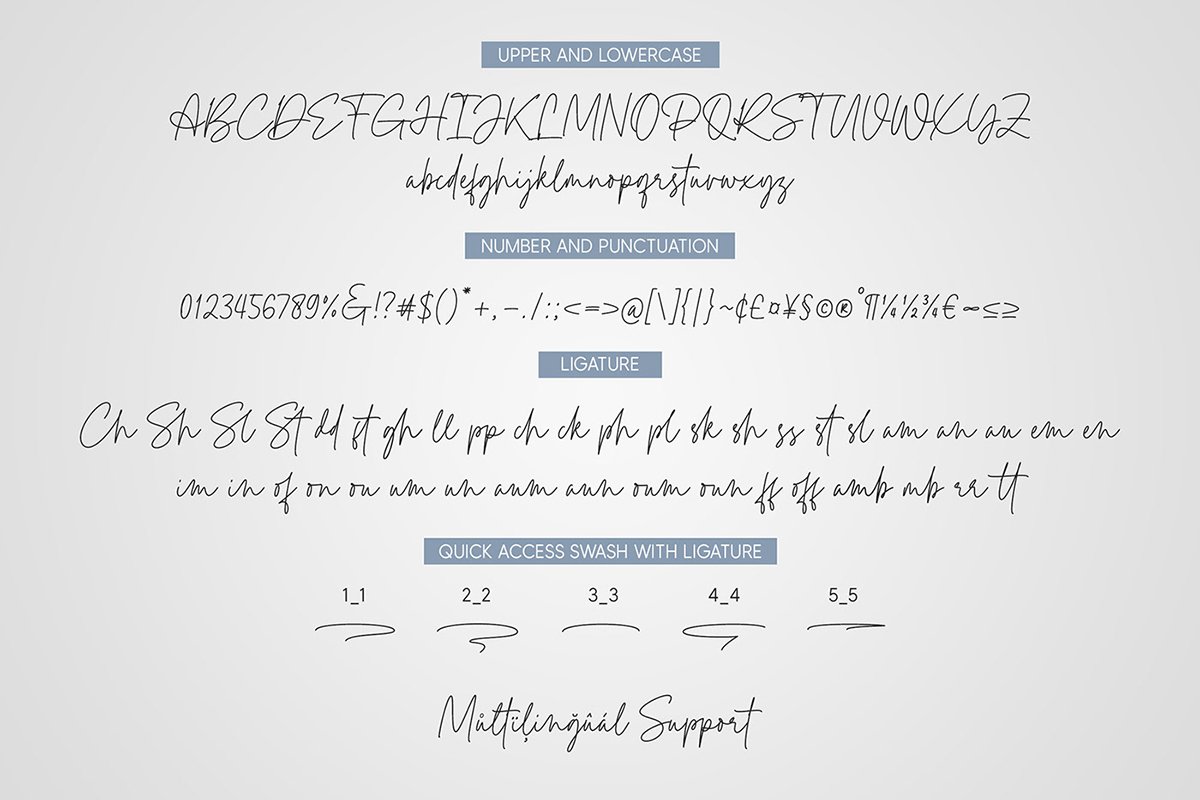 UPPER AND LOWERCASE
ABCDEFGHIJKLMNOPQRSTUVWXYZ
abcdefghijklmnopqrstuvwxyz
NUMBER AND PUNCTUATION
0123456789%&!?#$()*+,-./:;<=>@[\]{|}~¢£¤¥§©®°¶¼½¾€∞≤≥
LIGATURE
Ch Sh Sl St dd ft gh ll pp ch ck ph pl sk sh ss st sl am an au em en
im in of on ou um un aum aun oum oun ff off amb mb rr tt
QUICK ACCESS SWASH WITH LIGATURE
1_1 2_2 3_3 4_4 5_5
Můltïļinğûál Support